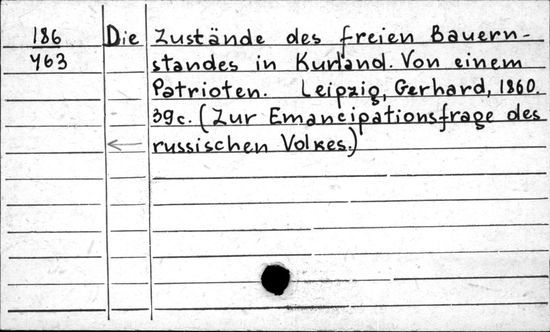 186 Die Zustände des freien Bauern-
463 standes in Kurland. Von einem
Patrioten. Leipzig, Gerhard, 1860.
39c. (Zur Emancipationsfrage des
← russischen Volkes.)